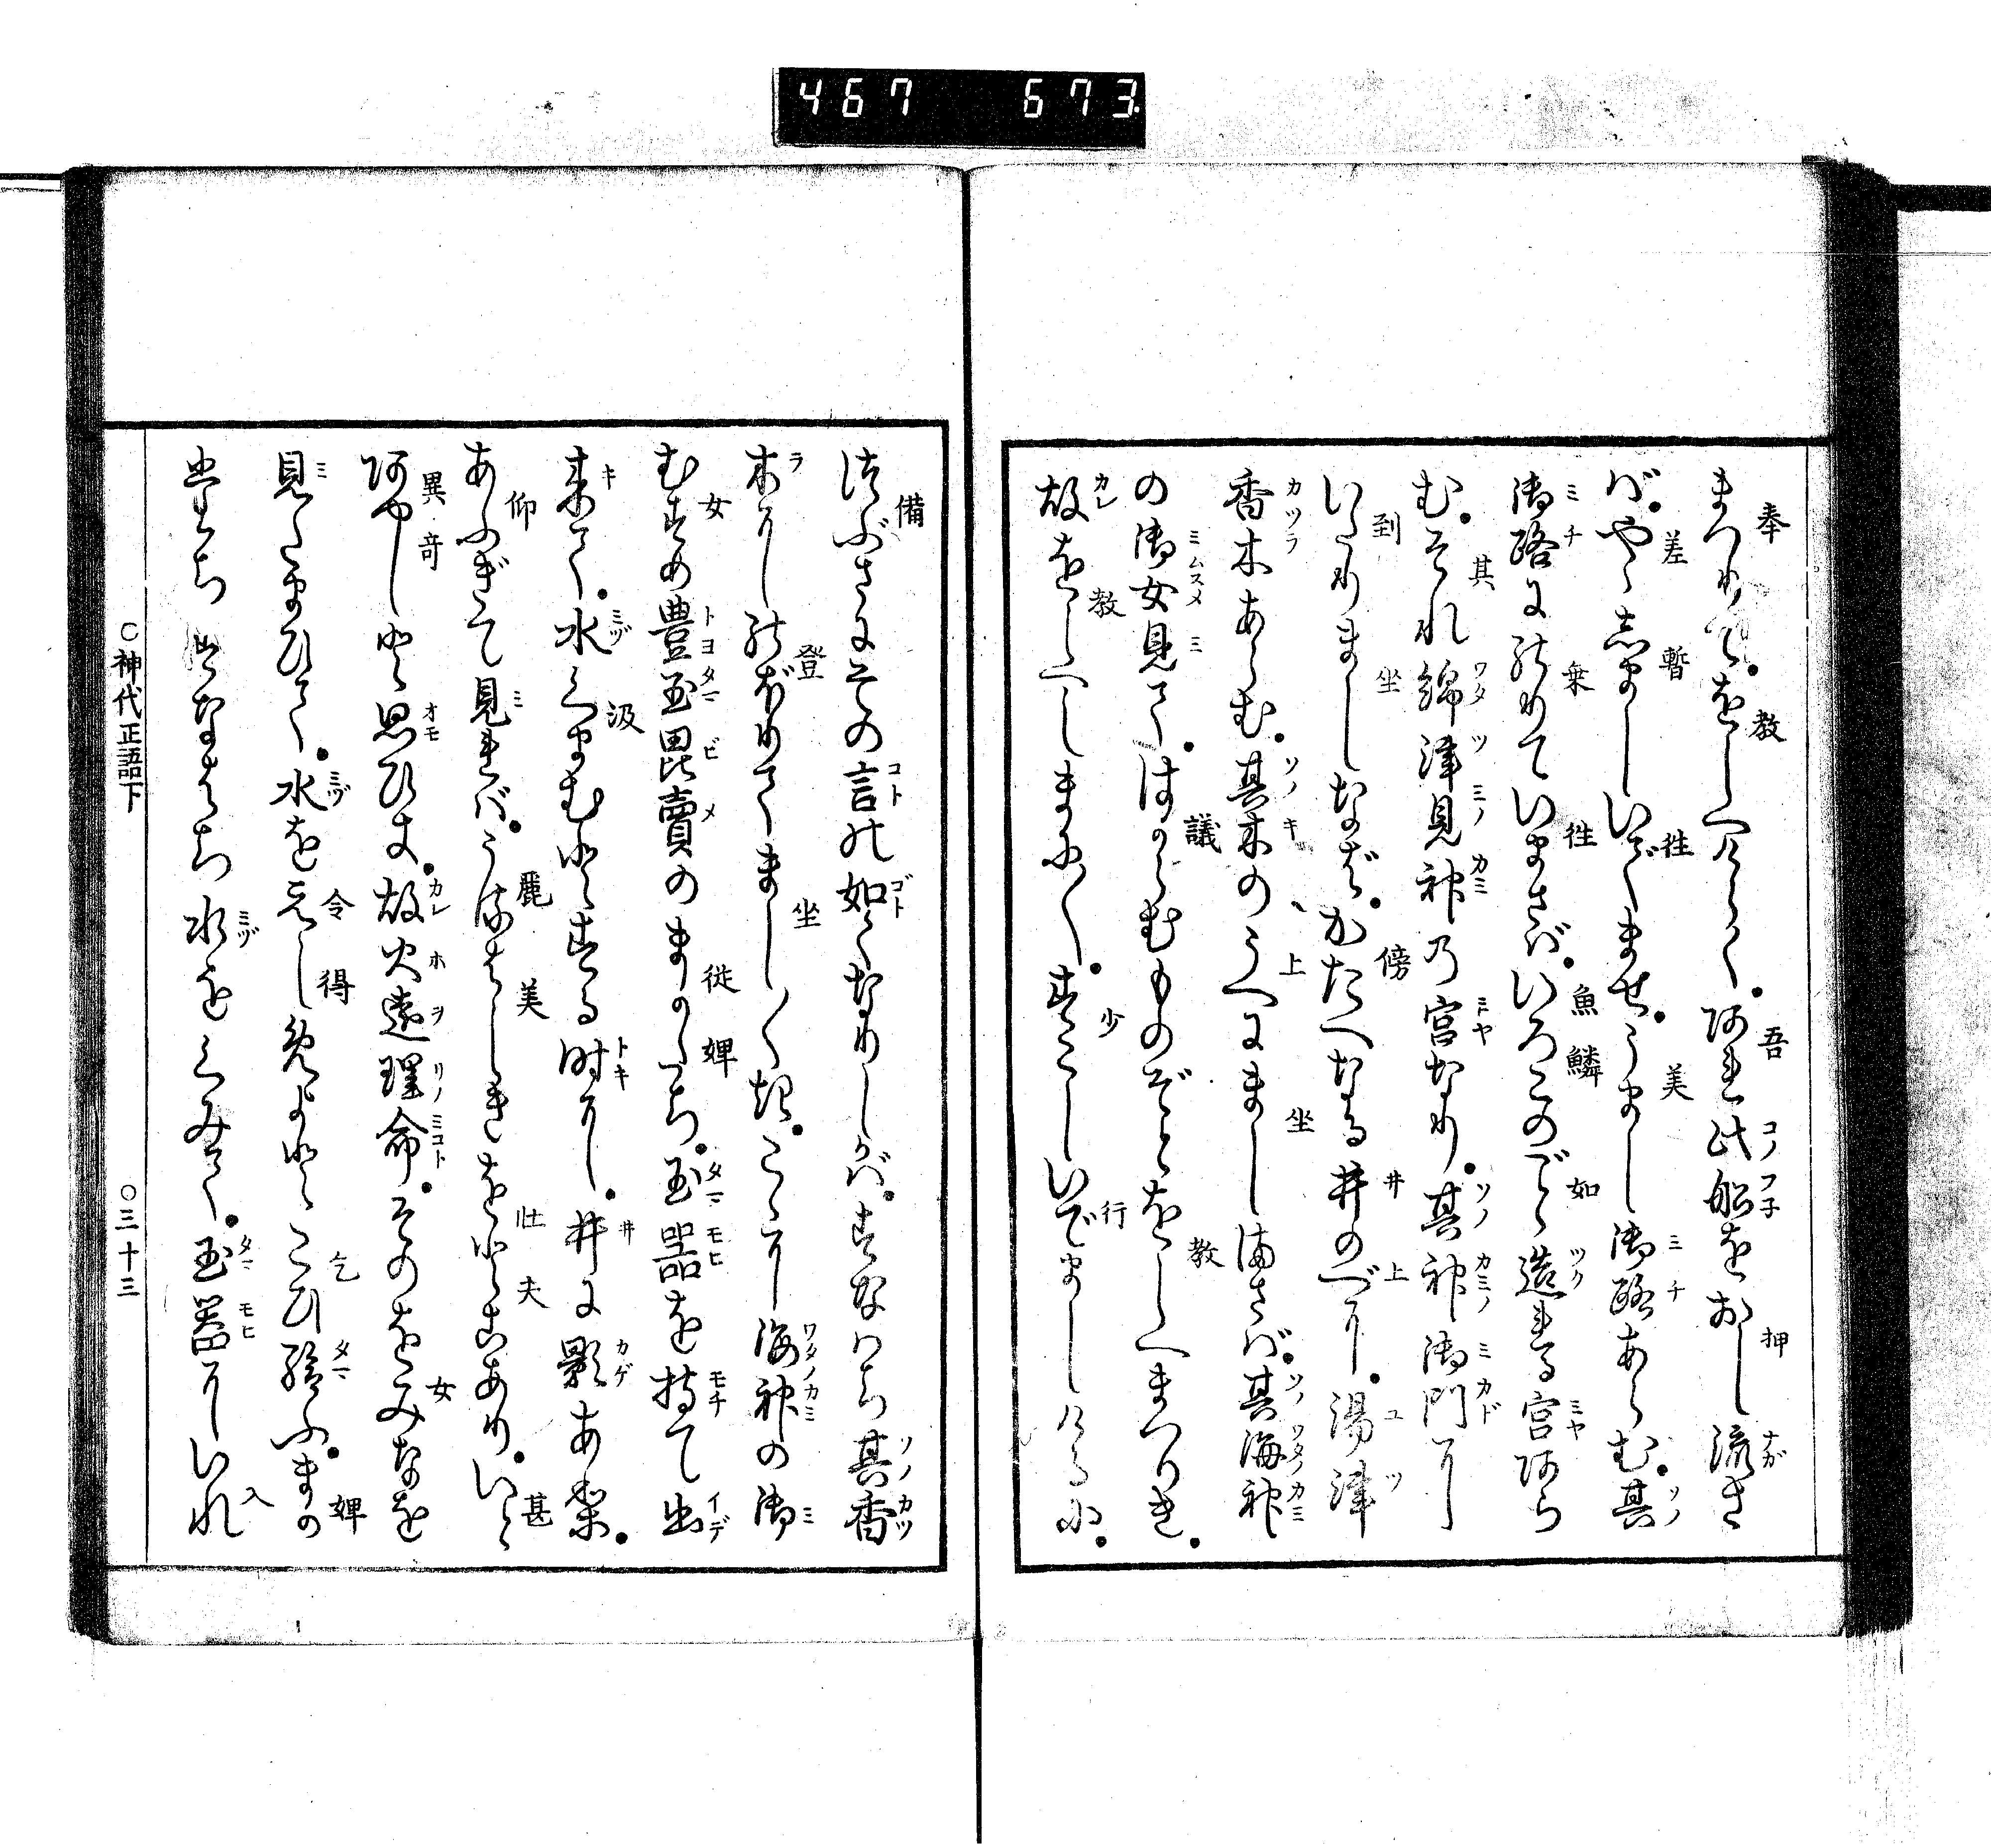 467 673
まつりて。をしへけらく。阿れ此船をおし流さ
ば。やゝ志ましいでませ。うまし御路あらむ。其
御路にのりていまさば。いろこのごと造れる宮阿ら
む。それ綿津見神の宮なり。其神御門に
いたりましなば。かたへなる井のべに。湯津
香木あらむ。其木のうへにましまさば。其海神
の御女見て。はからむものぞとをしへまつりき。
故をしへしまに〱。すこしいでましけるに。
つぶさにその言の如くなりしかば。すなはち其香
木にのぼりてまし〱き。こゝに海神の御
むすめ豊玉毘賣のまかたち。玉器を持て出
来て。水くまむとする時に。井に影あり。
あふぎて見れば。うるはしきをとこあり。いと
阿やしと思ひき。故火遠理命。そのをみなを
見たまひて。水をえしめよとこひ給ふ。まか
たちすなはち水をくみて。玉器にいれ
○神代正語下
○三十三